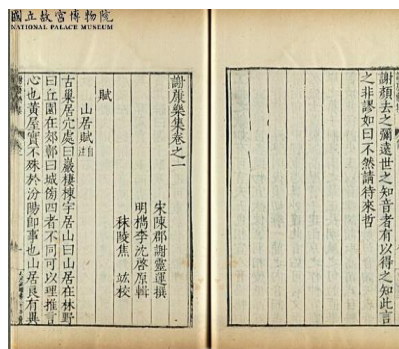 國立故宮博物院
NATIONAL PALACE MUSEUM
謝顏去之彌遠世之知音者有以得之知此言
之非謬如曰不然請待來哲
謝康樂集卷之一
宋陳郡謝靈運撰
明檇李沈啓原輯
秣陵焦 竑校
賦
山居賦 自註
古巢居穴處曰巖棲棟宇居山曰山居在林野
曰丘園在郊郭曰城傍四者不同可以理推言
心也黃屋實不殊於汾陽即事也山居良有異